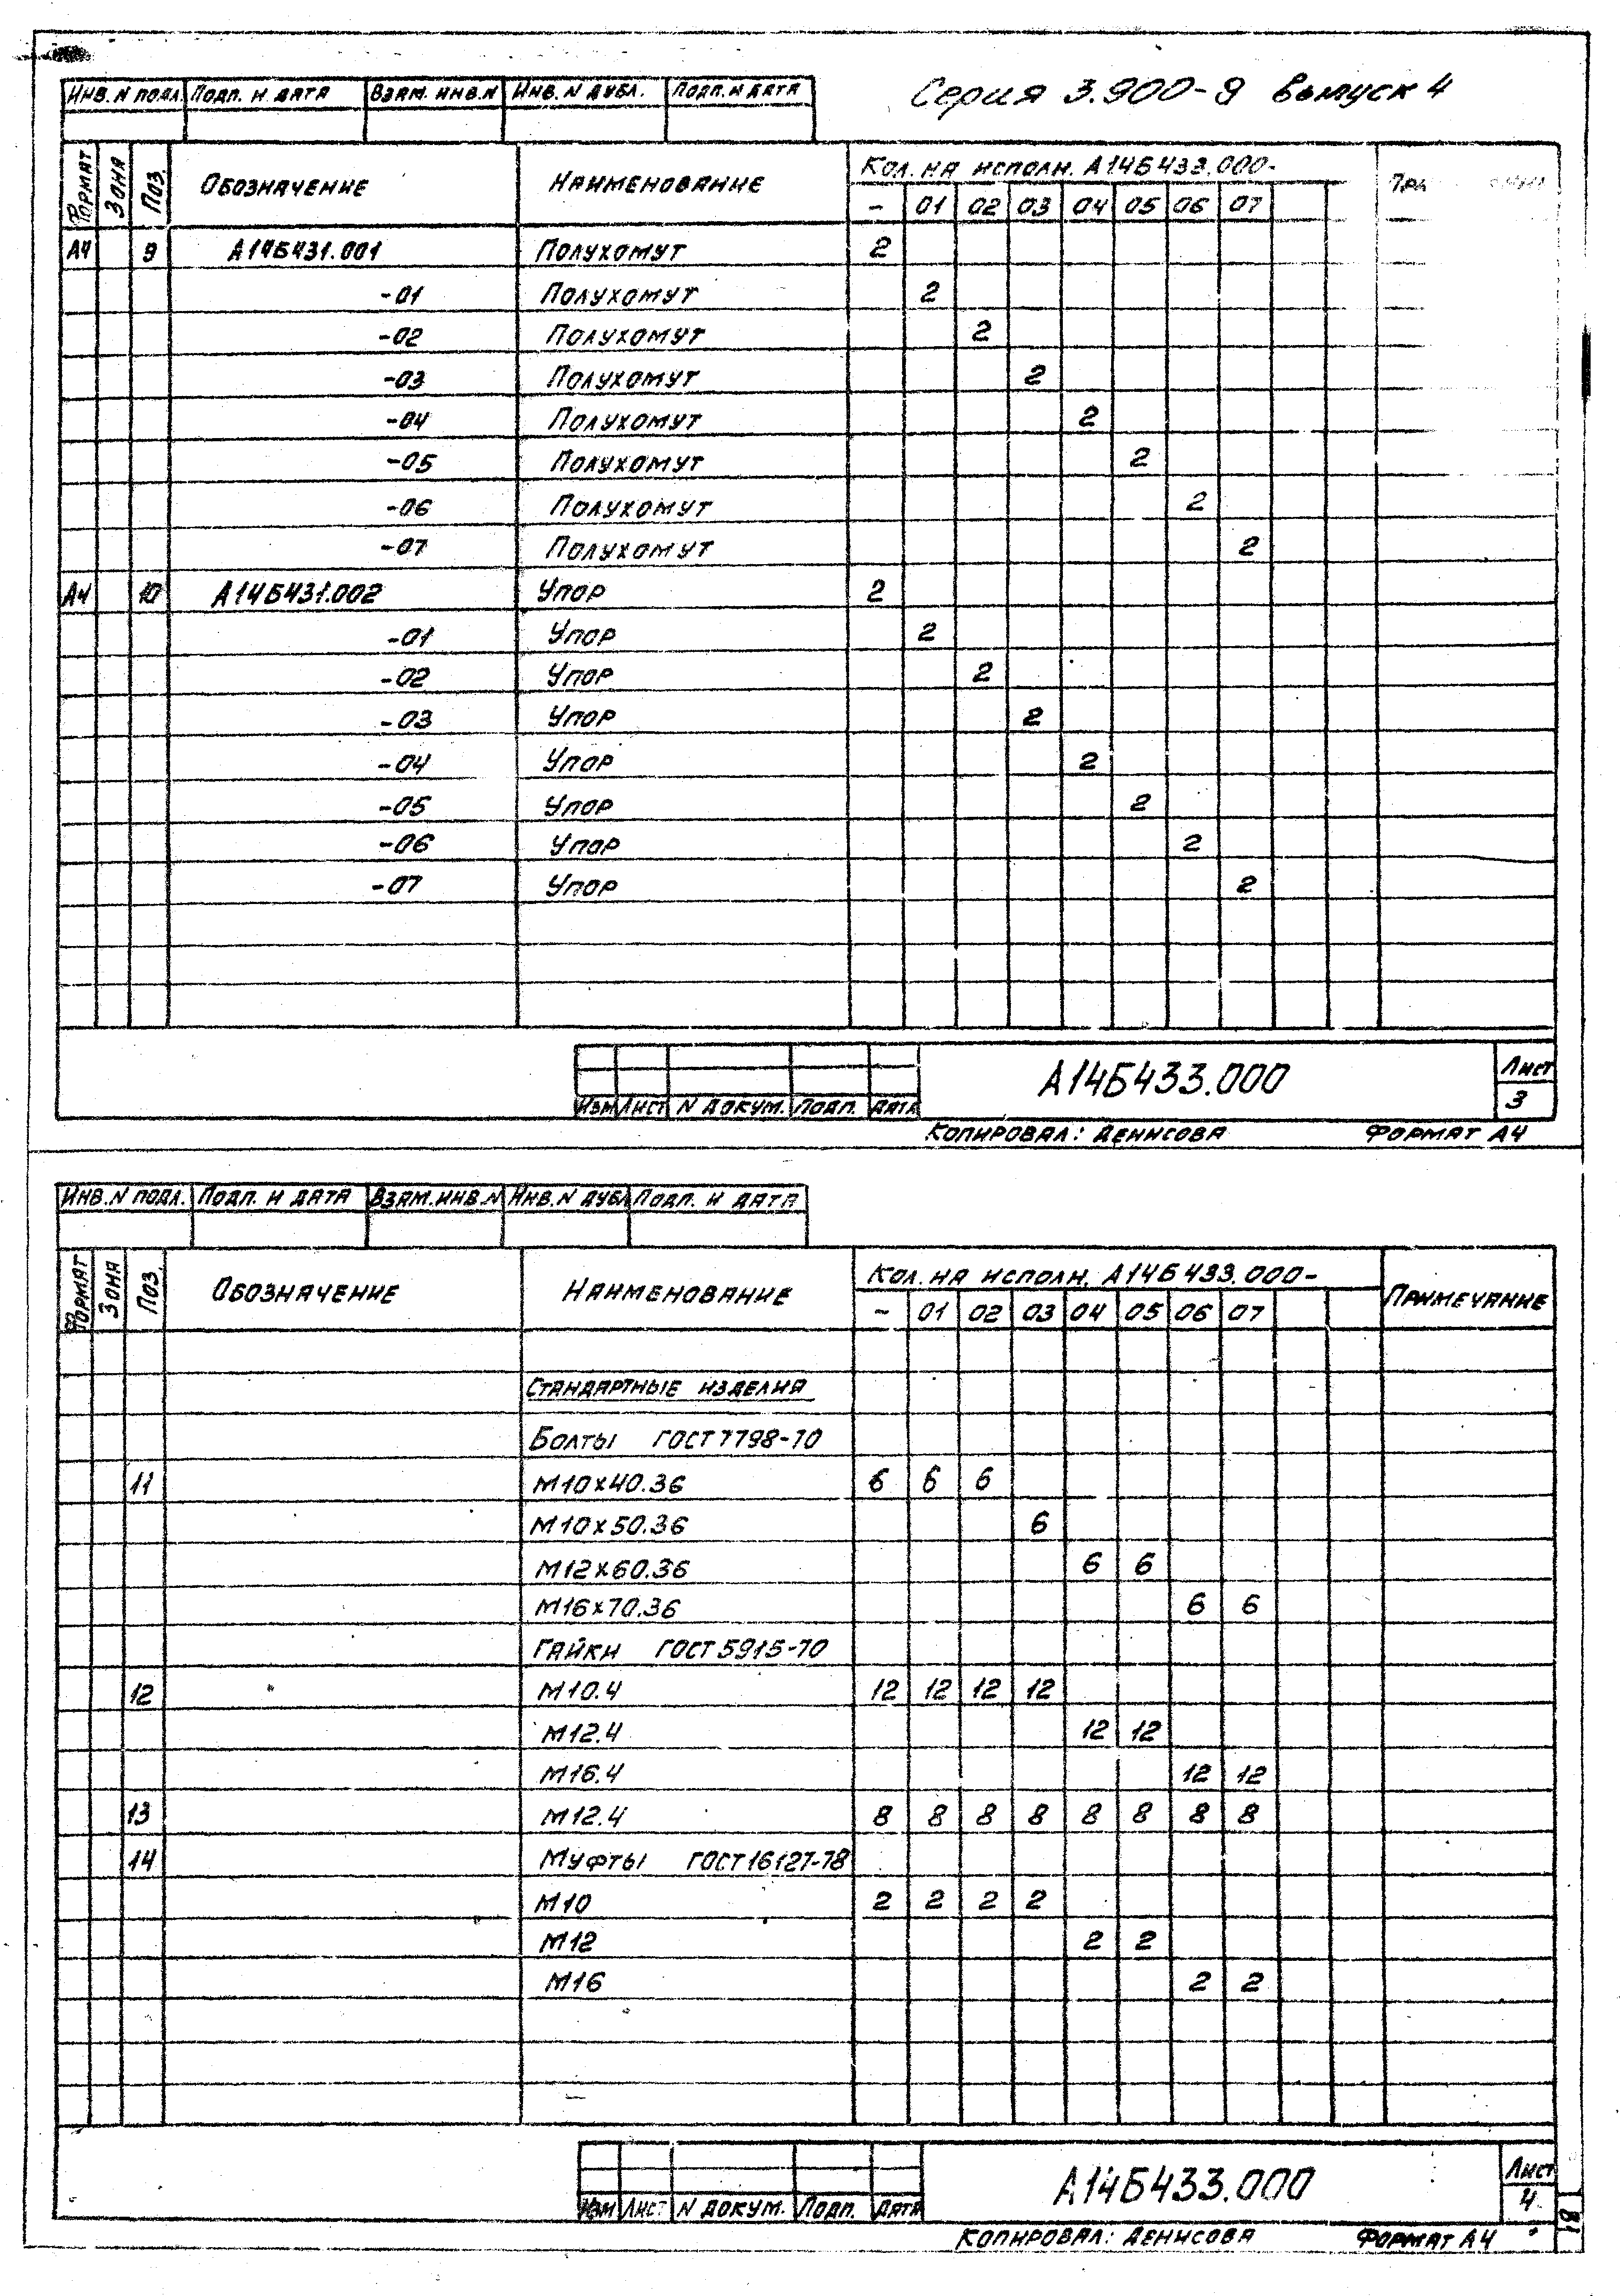 Серия 3.900-9 выпуск 4
Инв. N подл. Подп. и дата Взам. инв. N Инв. N дубл. Подп. и дата
Формат Зона Поз. Обозначение Наименование Кол. на исполн. А14Б433.000-
- 01 02 03 04 05 06 07
А4 9 А14Б431.001 Полухомут 2
-01 Полухомут 2
-02 Полухомут 2
-03 Полухомут 2
-04 Полухомут 2
-05 Полухомут 2
-06 Полухомут 2
-07 Полухомут 2
А4 10 А14Б431.002 Упор 2
-01 Упор 2
-02 Упор 2
-03 Упор 2
-04 Упор 2
-05 Упор 2
-06 Упор 2
-07 Упор 2
Изм Лист N докум. Подп. Дата А14Б433.000 Лист 3
Копировал: Денисова Формат А4
Инв. N подл. Подп. и дата Взам. инв. N Инв. N дубл Подп. и дата
Формат Зона Поз. Обозначение Наименование Кол. на исполн. А14Б433.000- Примечание
- 01 02 03 04 05 06 07
Стандартные изделия
Болты ГОСТ 7798-70
11 М10х40.36 6 6 6
М10х50.36 6
М12х60.36 6 6
М16х70.36 6 6
Гайки ГОСТ 5915-70
12 М10.4 12 12 12 12
М12.4 12 12
М16.4 12 12
13 М12.4 8 8 8 8 8 8 8 8
14 Муфты ГОСТ 16127-78
М10 2 2 2 2
М12 2 2
М16 2 2
Изм Лист N докум. Подп. Дата А14Б433.000 Лист 4
Копировал: Денисова Формат А4
81